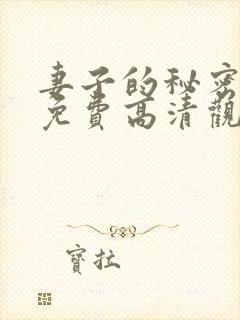 妻子的秘密
免费高清觀
寶拉